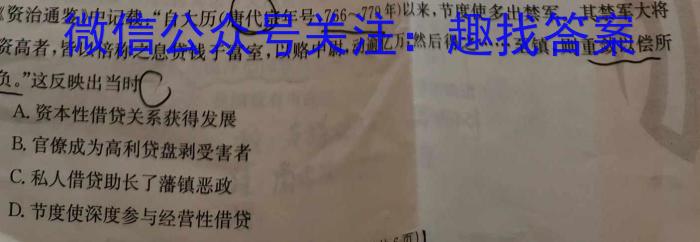 《资治通鉴》中记载:"自大历(唐代宗年号,766—779年)以来,节度使多出禁军,其禁军大将
资高者,皆以倍称之息贷钱于富室,以赂中尉,动逾亿万,然后得之……至镇,则重敛以偿所
负。"这反映出当时
A. 资本性借贷关系获得发展
B. 官僚成为高利贷盘剥受害者
C. 私人借贷助长了藩镇恶政
D. 节度使深度参与经营性借贷
微信公众号关注:趣找答案
页)】